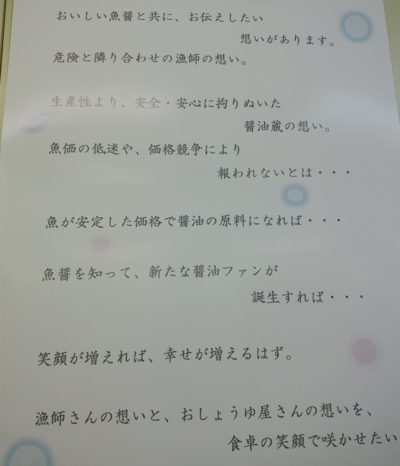 おいしい魚醤と共に、お伝えしたい
想いがあります。
危険と隣り合わせの漁師の想い。
生産性より、安全・安心に拘りぬいた
醤油蔵の想い。
魚価の低迷や、価格競争により
報われないとは・・・
魚が安定した価格で醤油の原料になれば・・・
魚醤を知って、新たな醤油ファンが
誕生すれば・・・
笑顔が増えれば、幸せが増えるはず。
漁師さんの想いと、おしょうゆ屋さんの想いを、
食卓の笑顔で咲かせたい